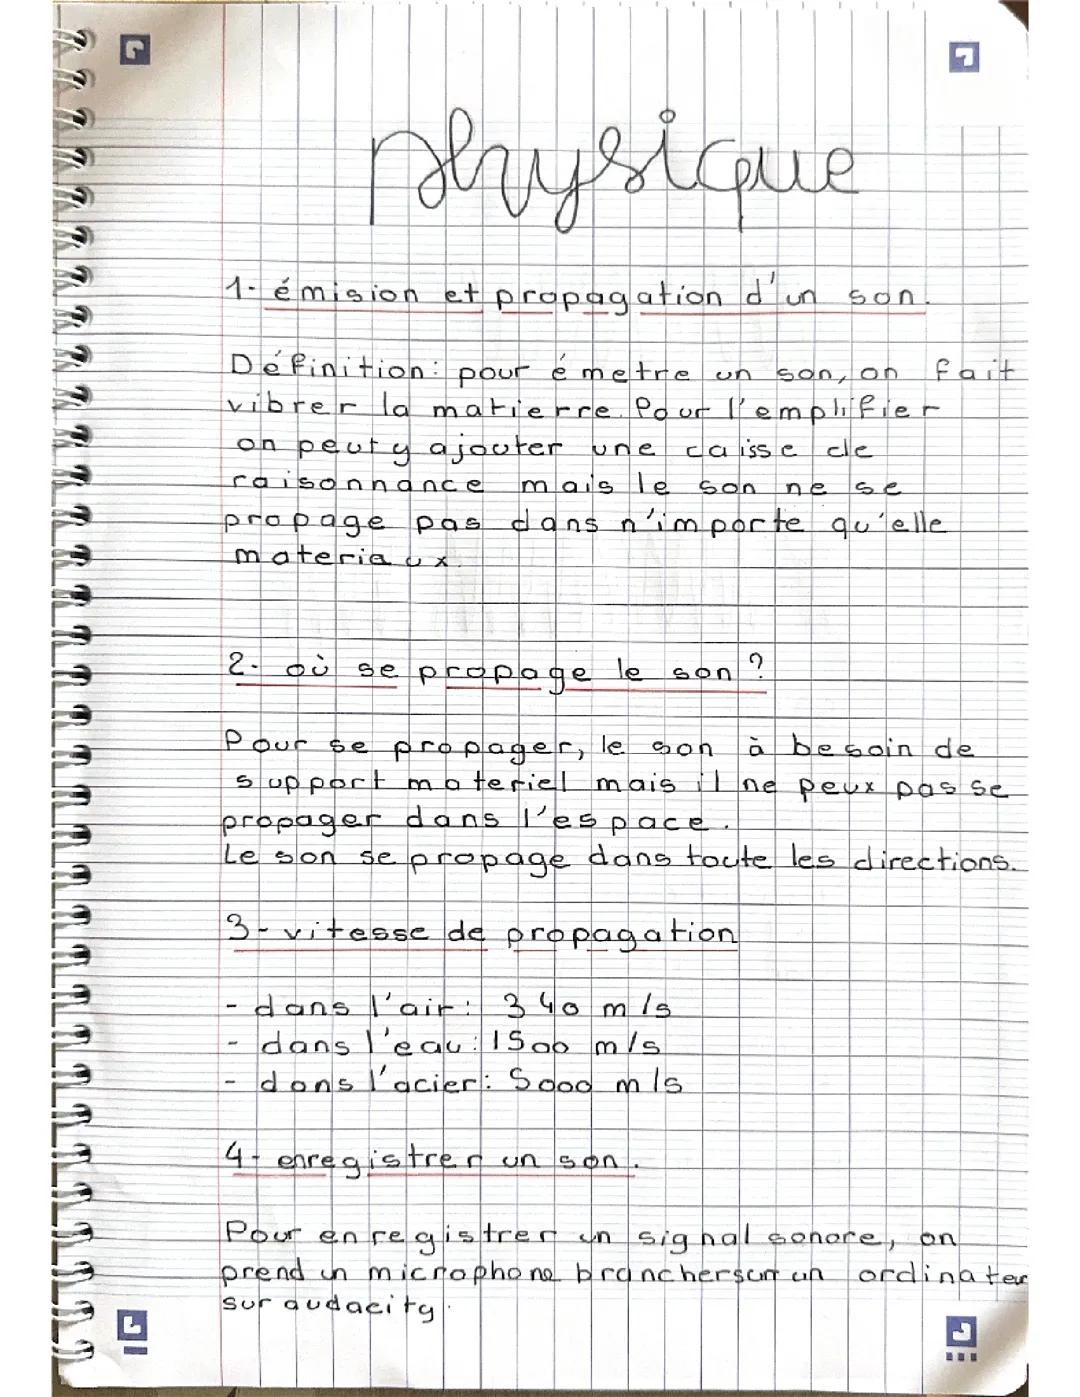 physique
1- émision et propagation d'un son.
Définition: pour émetre un son, on fait
vibrer la matierre. Pour l'emplifier
on peut y ajouter une caisse de
raisonnance mais le son ne se
propage pas dans n'importe qu'elle
materiaux.
2- où se propage le son ?
Pour se propager, le son à besoin de
support materiel mais il ne peux pas se
propager dans l'espace.
Le son se propage dans toute les directions.
3- vitesse de propagation
- dans l'air: 340 m/s
- dans l'eau: 1500 m/s
- dans l'acier: 5000 m/s
4- enregistrer un son.
Pour enregistrer un signal sonore, on
prend un microphone brancher sur un ordinateur
sur audacity.